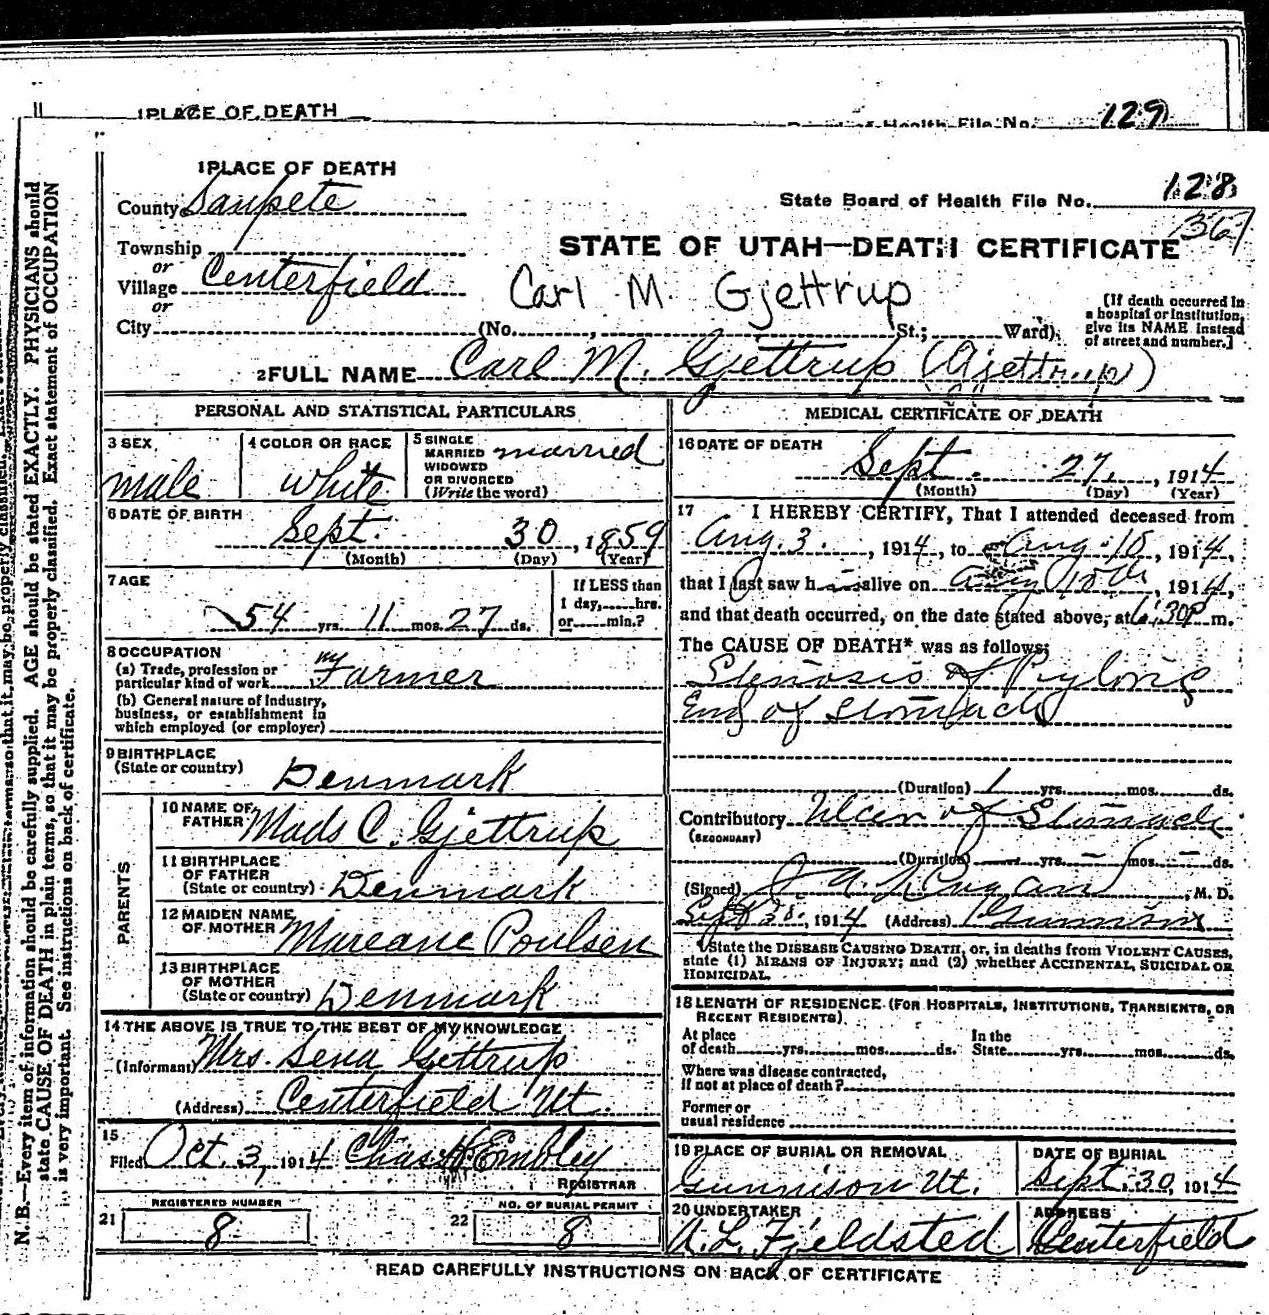 1 PLACE OF DEATH
Board of Health File No. 129
1 PLACE OF DEATH
County Sanpete
State Board of Health File No. 128
367
Township
STATE OF UTAH—DEATH CERTIFICATE
or
Village Centerfield
Carl M. Gjettrup
or
City (No. , St.; Ward)
[If death occurred in
a hospital or institution,
give its NAME instead
of street and number.]
2 FULL NAME Carl M. Gjettrup (Gjettrup)
PERSONAL AND STATISTICAL PARTICULARS
3 SEX
male
4 COLOR OR RACE
white
5 SINGLE
MARRIED
WIDOWED
OR DIVORCED
(Write the word)
married
6 DATE OF BIRTH
Sept. 30, 1859
(Month) (Day) (Year)
7 AGE
54 yrs. 11 mos. 27 ds.
If LESS than
1 day, hrs.
or min.?
8 OCCUPATION
(a) Trade, profession or
particular kind of work Farmer
(b) General nature of industry,
business, or establishment in
which employed (or employer)
9 BIRTHPLACE
(State or country) Denmark
PARENTS
10 NAME OF
FATHER Mads C. Gjettrup
11 BIRTHPLACE
OF FATHER
(State or country) Denmark
12 MAIDEN NAME
OF MOTHER Mareane Poulsen
13 BIRTHPLACE
OF MOTHER
(State or country) Denmark
14 THE ABOVE IS TRUE TO THE BEST OF MY KNOWLEDGE
(Informant) Mrs. Sena Gjettrup
(Address) Centerfield Ut.
15
Filed Oct. 3, 1914 Chas H Embley
REGISTRAR
REGISTERED NUMBER
21 8
NO. OF BURIAL PERMIT
22 8
MEDICAL CERTIFICATE OF DEATH
16 DATE OF DEATH
Sept. 27, 1914
(Month) (Day) (Year)
17 I HEREBY CERTIFY, That I attended deceased from
Aug. 3, 1914, to Aug. 18, 1914,
that I last saw h alive on Aug 18th, 1914,
and that death occurred, on the date stated above, at 6:30P m.
The CAUSE OF DEATH* was as follows:
Stenosis of Pyloric
End of Stomach
(Duration) 1 yrs. mos. ds.
Contributory Ulcer of Stomach
(SECONDARY)
(Duration) — yrs. — mos. — ds.
(Signed) , M. D.
Sept , 1914 (Address) Gunnison
*State the DISEASE CAUSING DEATH, or, in deaths from VIOLENT CAUSES,
state (1) MEANS OF INJURY; and (2) whether ACCIDENTAL, SUICIDAL OR
HOMICIDAL.
18 LENGTH OF RESIDENCE (FOR HOSPITALS, INSTITUTIONS, TRANSIENTS, OR
RECENT RESIDENTS).
At place
of death yrs. mos. ds.
In the
State yrs. mos. ds.
Where was disease contracted,
if not at place of death?
Former or
usual residence
19 PLACE OF BURIAL OR REMOVAL
Gunnison Ut.
DATE OF BURIAL
Sept. 30, 1914
20 UNDERTAKER
A. L. Fjeldsted
ADDRESS
Centerfield
READ CAREFULLY INSTRUCTIONS ON BACK OF CERTIFICATE
N. B.—Every item of information should be carefully supplied. AGE should be stated EXACTLY. PHYSICIANS should
state CAUSE OF DEATH in plain terms, so that it may be properly classified. Exact statement of OCCUPATION
is very important. See instructions on back of certificate.